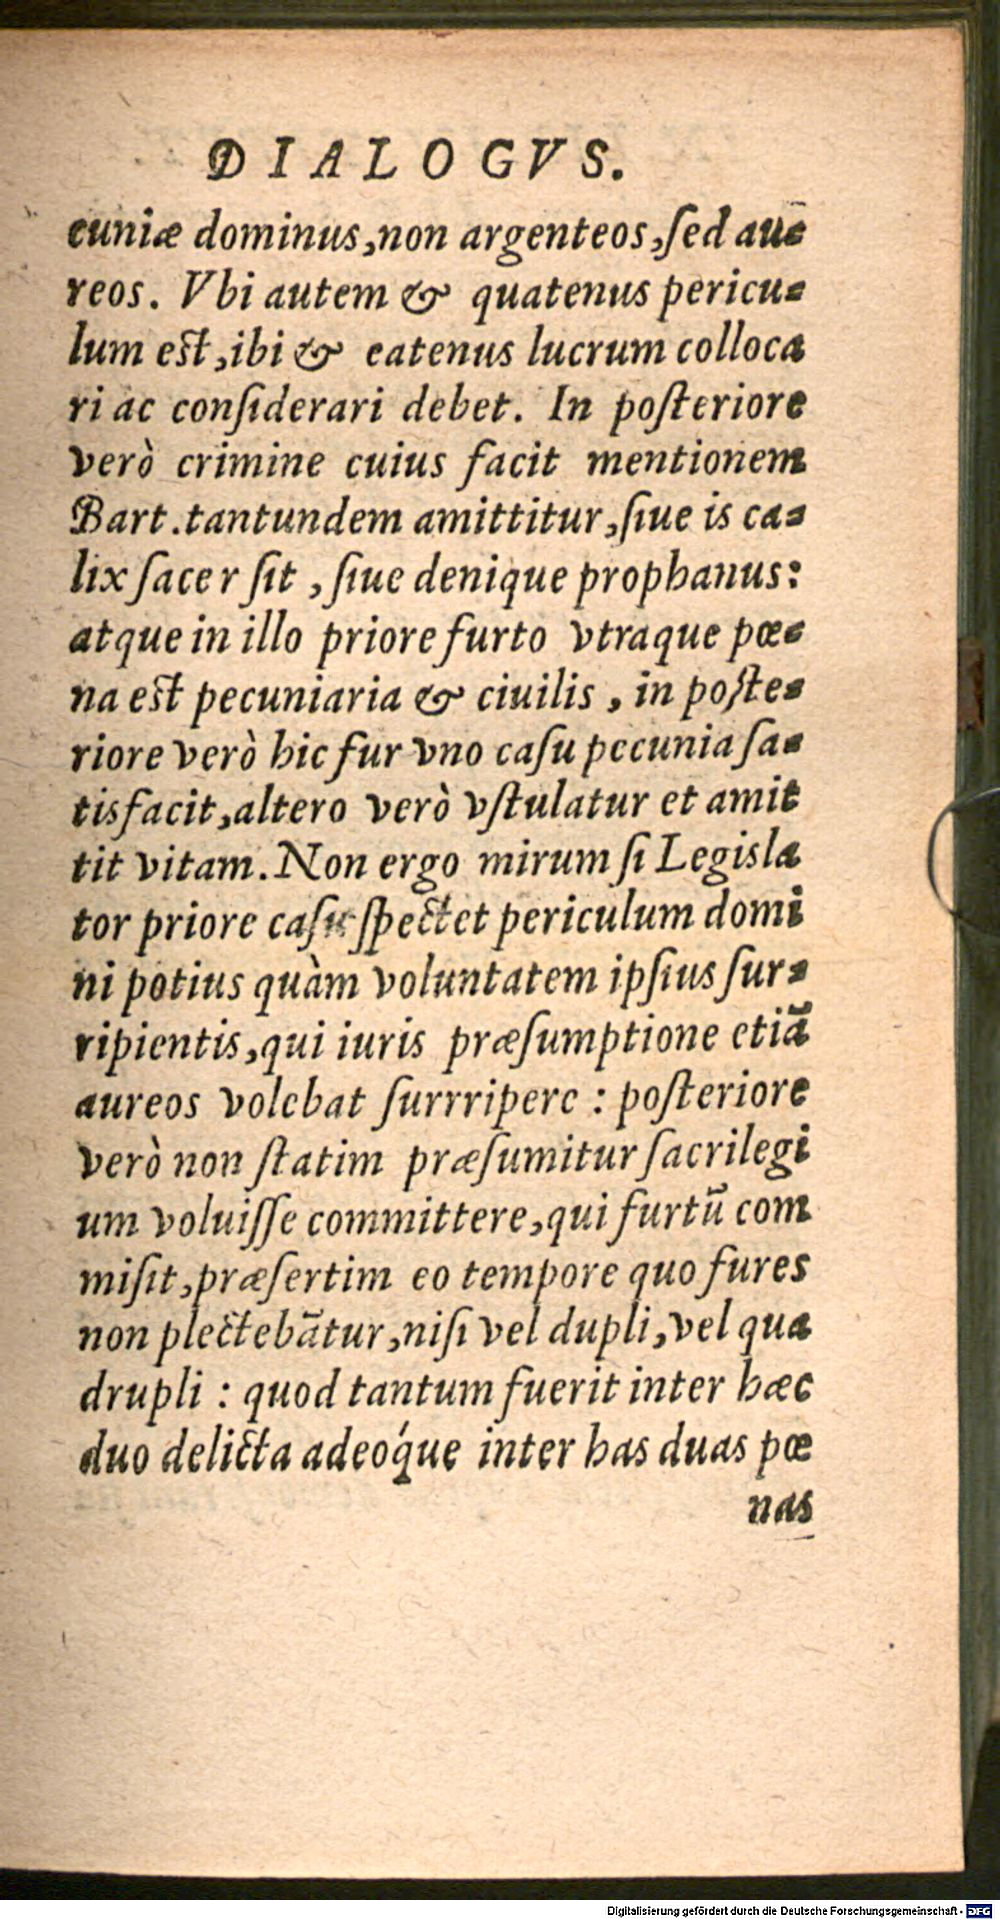 DIALOGVS.
cuniæ dominus, non argenteos, ſed au-
reos. Vbi autem & quatenus pericu-
lum eſt, ibi & eatenus lucrum colloca
ri ac conſiderari debet. In poſteriore
verò crimine cuius facit mentionem
Bart. tantundem amittitur, ſiue is ca-
lix ſacer ſit, ſiue denique prophanus:
atque in illo priore furto vtraque pœ-
na eſt pecuniaria & ciuilis, in poſte-
riore verò hic fur vno caſu pecunia ſa-
tisfacit, altero verò vſtulatur et amit
tit vitam. Non ergo mirum ſi Legisla
tor priore caſu ſpectet periculum domi
ni potius quàm voluntatem ipſius ſur-
ripientis, qui iuris præſumptione etiã
aureos volebat ſurrripere: poſteriore
verò non ſtatim præſumitur ſacrilegi
um voluiſſe committere, qui furtū com
miſit, præſertim eo tempore quo fures
non plectebãtur, niſi vel dupli, vel qua
drupli: quod tantum fuerit inter hæc
duo delicta adeoq́ue inter has duas pœ
nas
Digitalisierung gefördert durch die Deutsche Forschungsgemeinschaft - DFG